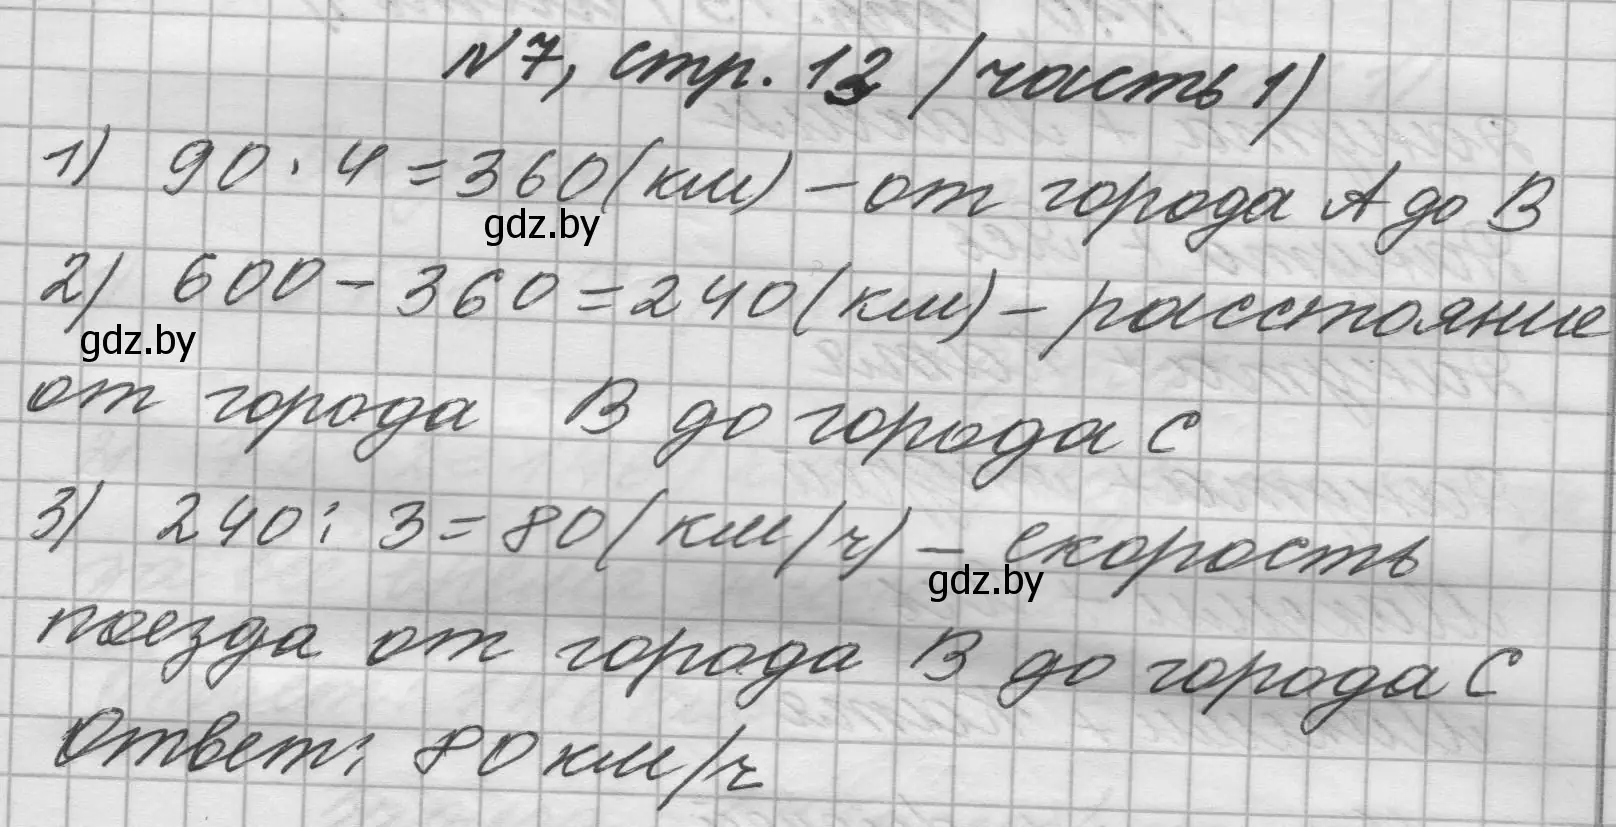 N7, стр. 13 (часть 1)
1) 90 · 4 = 360 (км) – от города А до В
gdz.by
2) 600 – 360 = 240 (км) – расстояние
gdz.by
от города В до города С
3) 240 : 3 = 80 (км/ч) – скорость
gdz.by
поезда от города В до города С
Ответ: 80 км/ч